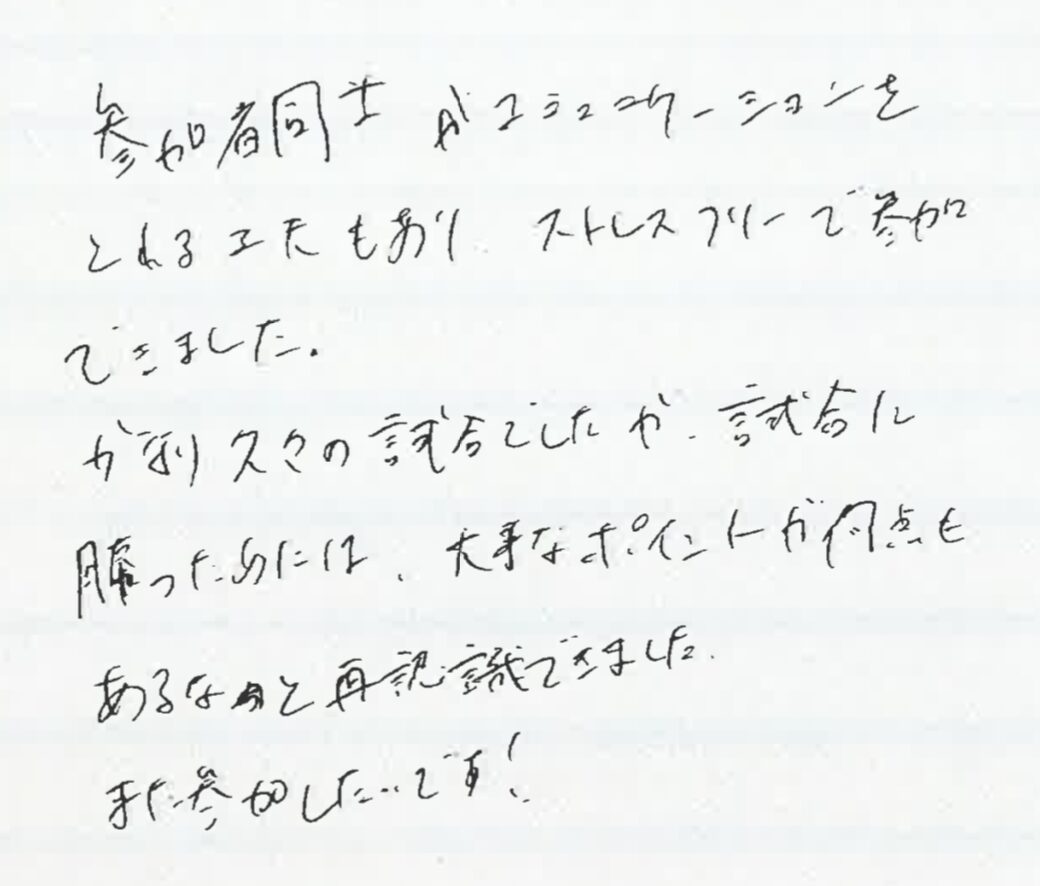 参加者同士がコミュニケーションを
とれる工夫もあり ストレスフリーで参加
できました.
かなり久々の試合でしたが、試合に
勝つためには、大事なポイントが何点も
あるなぁと再認識できました.
また参加したいです!